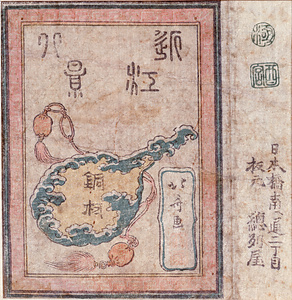 日本橋南通二丁目
板元 總州屋
近江
八景
銅板
画